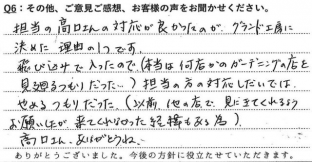 Q6：その他、ご意見ご感想、お客様の声をお聞かせください。
担当の高口さんの対応が良かったのが、グランド工房に
決めた理由の1つです。
飛び込みで入ったので（本当は何店かのガーデニングの店を
見廻るつもりだった…）担当の方の対応しだいでは、
やめるつもりだった。（以前、他の店で、見にきてくれるよう
お願いしたが来てくれなかった経験もある為）
高口さん、ありがとうね。
ありがとうございました。今後の方針に役立たせていただきます。